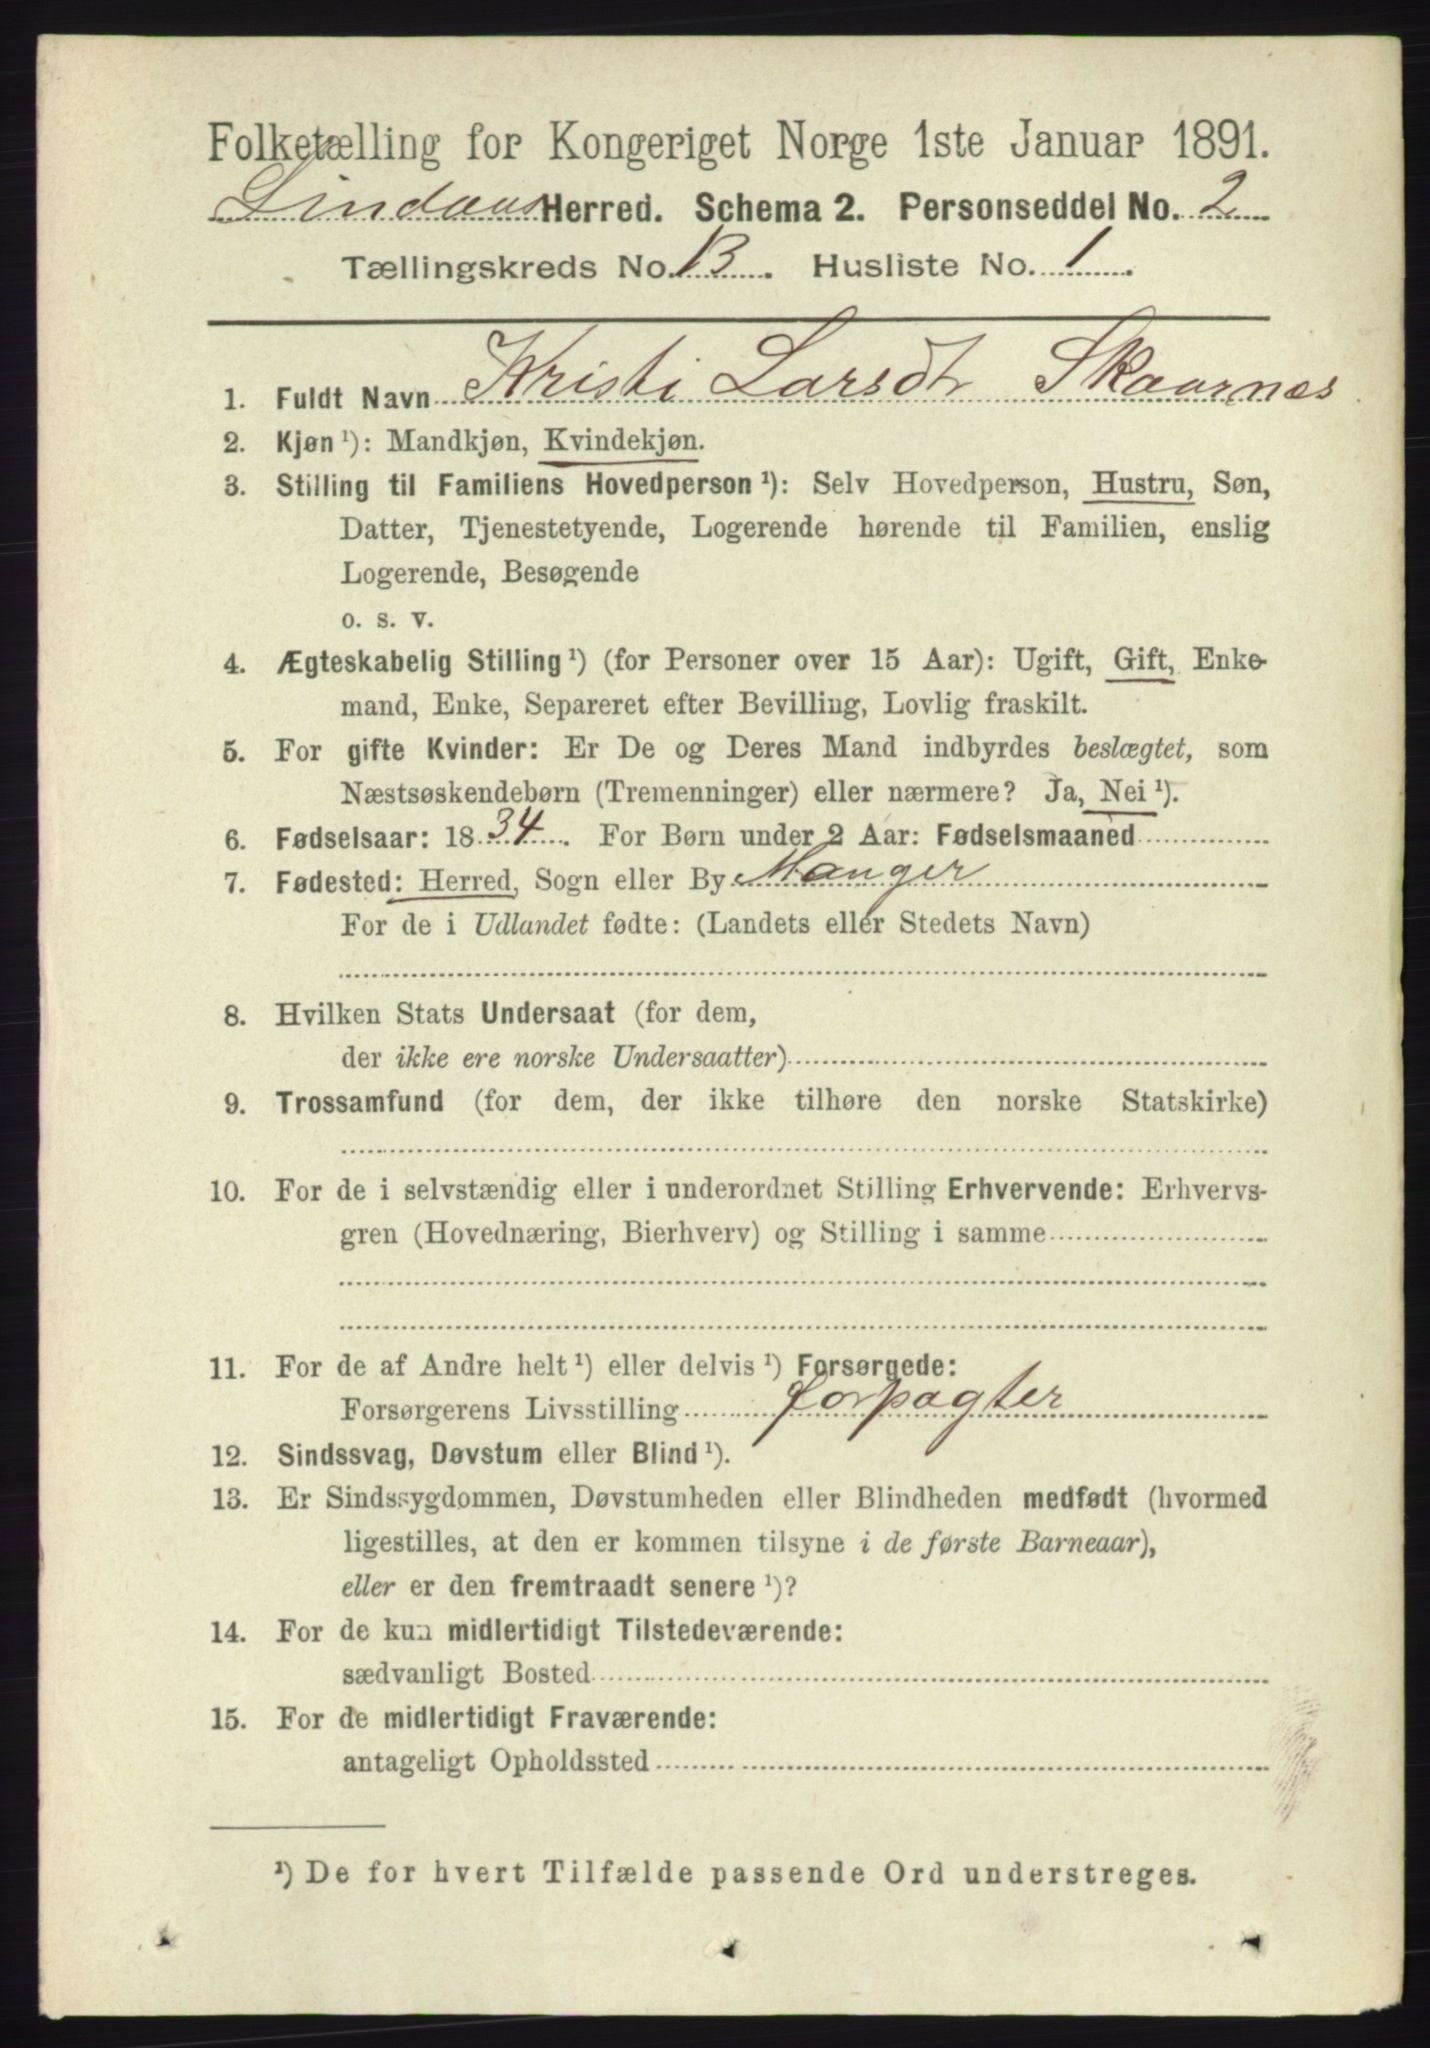 Folketælling for Kongeriget Norge 1ste Januar 1891.
Lindaas Herred. Schema 2. Personseddel No. 2
Tællingskreds No. 13. Husliste No. 1.
1. Fuldt Navn Kristi Larsdtr Skaarnes
2. Kjøn ¹): Mandkjøn, Kvindekjøn.
3. Stilling til Familiens Hovedperson ¹): Selv Hovedperson, Hustru, Søn,
Datter, Tjenestetyende, Logerende hørende til Familien, enslig
Logerende, Besøgende
o. s. v.
4. Ægteskabelig Stilling ¹) (for Personer over 15 Aar): Ugift, Gift, Enke-
mand, Enke, Separeret efter Bevilling, Lovlig fraskilt.
5. For gifte Kvinder: Er De og Deres Mand indbyrdes beslægtet, som
Næstsøskendebørn (Tremenninger) eller nærmere? Ja, Nei ¹).
6. Fødselsaar: 1834. For Børn under 2 Aar: Fødselsmaaned
7. Fødested: Herred, Sogn eller By Manger
For de i Udlandet fødte: (Landets eller Stedets Navn)
8. Hvilken Stats Undersaat (for dem,
der ikke ere norske Undersaatter)
9. Trossamfund (for dem, der ikke tilhøre den norske Statskirke)
10. For de i selvstændig eller i underordnet Stilling Erhvervende: Erhvervs-
gren (Hovednæring, Bierhverv) og Stilling i samme
11. For de af Andre helt ¹) eller delvis ¹) Forsørgede:
Forsørgerens Livsstilling Forpagter
12. Sindssvag, Døvstum eller Blind ¹).
13. Er Sindssygdommen, Døvstumheden eller Blindheden medfødt (hvormed
ligestilles, at den er kommen tilsyne i de første Barneaar),
eller er den fremtraadt senere ¹)?
14. For de kun midlertidigt Tilstedeværende:
sædvanligt Bosted
15. For de midlertidigt Fraværende:
antageligt Opholdssted
¹) De for hvert Tilfælde passende Ord understreges.